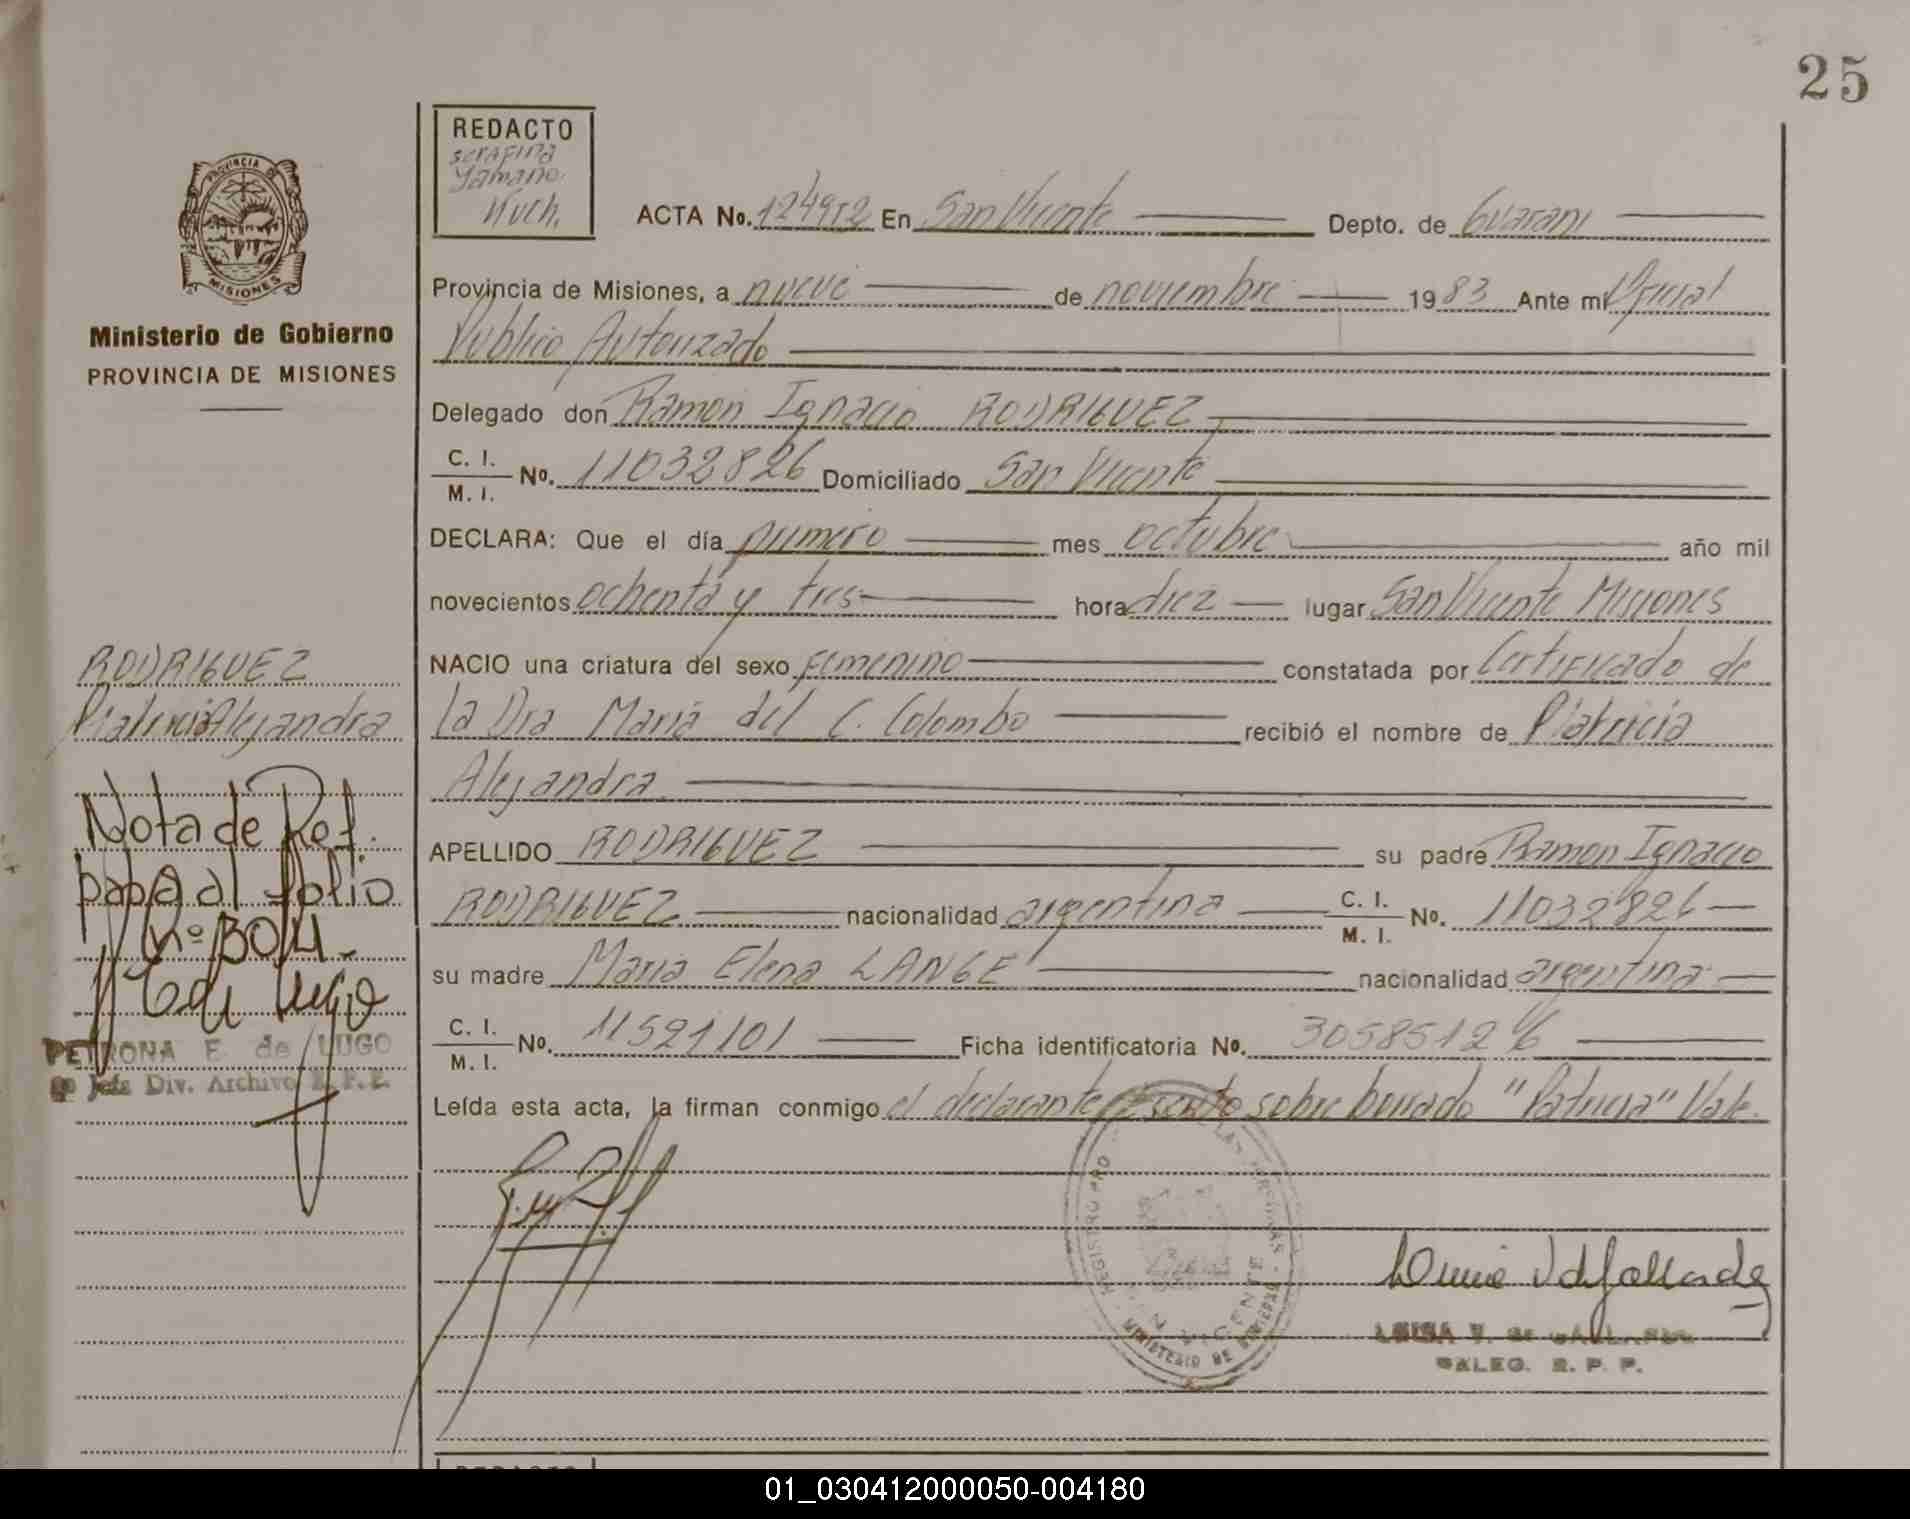 25
REDACTO
serafina
Yamano
Kuch.
PROVINCIA DE
MISIONES
Ministerio de Gobierno
PROVINCIA DE MISIONES
ACTA No. En San Vicente Depto. de Guarani
Provincia de Misiones, a nueve de noviembre 1983 Ante mi Oficial
Publico Autorizado
Delegado don Ramon Ignacio RODRIGUEZ
C. I.
M. I. No. 11032826 Domiciliado San Vicente
DECLARA: Que el día primero mes octubre año mil
novecientos ochenta y tres hora diez lugar San Vicente Misiones
NACIO una criatura del sexo femenino constatada por Certificado de
la Dra Maria del C. Colombo recibió el nombre de Patricia
Alejandra
APELLIDO RODRIGUEZ su padre Ramon Ignacio
RODRIGUEZ nacionalidad argentina C. I.
M. I. No. 11032826
su madre Maria Elena LANGE nacionalidad argentina
C. I.
M. I. No. 11521101 Ficha identificatoria No.
Leída esta acta, la firman conmigo el declarante sobre borrado "Patricia" Vale.
RODRIGUEZ
Patricia Alejandra
Nota de Ref.
pasa al folio
nº 304.
PETRONA E. de LUGO
Jefa Div. Archivo R. P. P.
REGISTRO PRO LAS PERSONAS
SAN VICENTE
MINISTERIO DE GOBIERNO
LUISA V. de GALLARDO
DALEG. R. P. P.
REDACTO
01_030412000050-004180